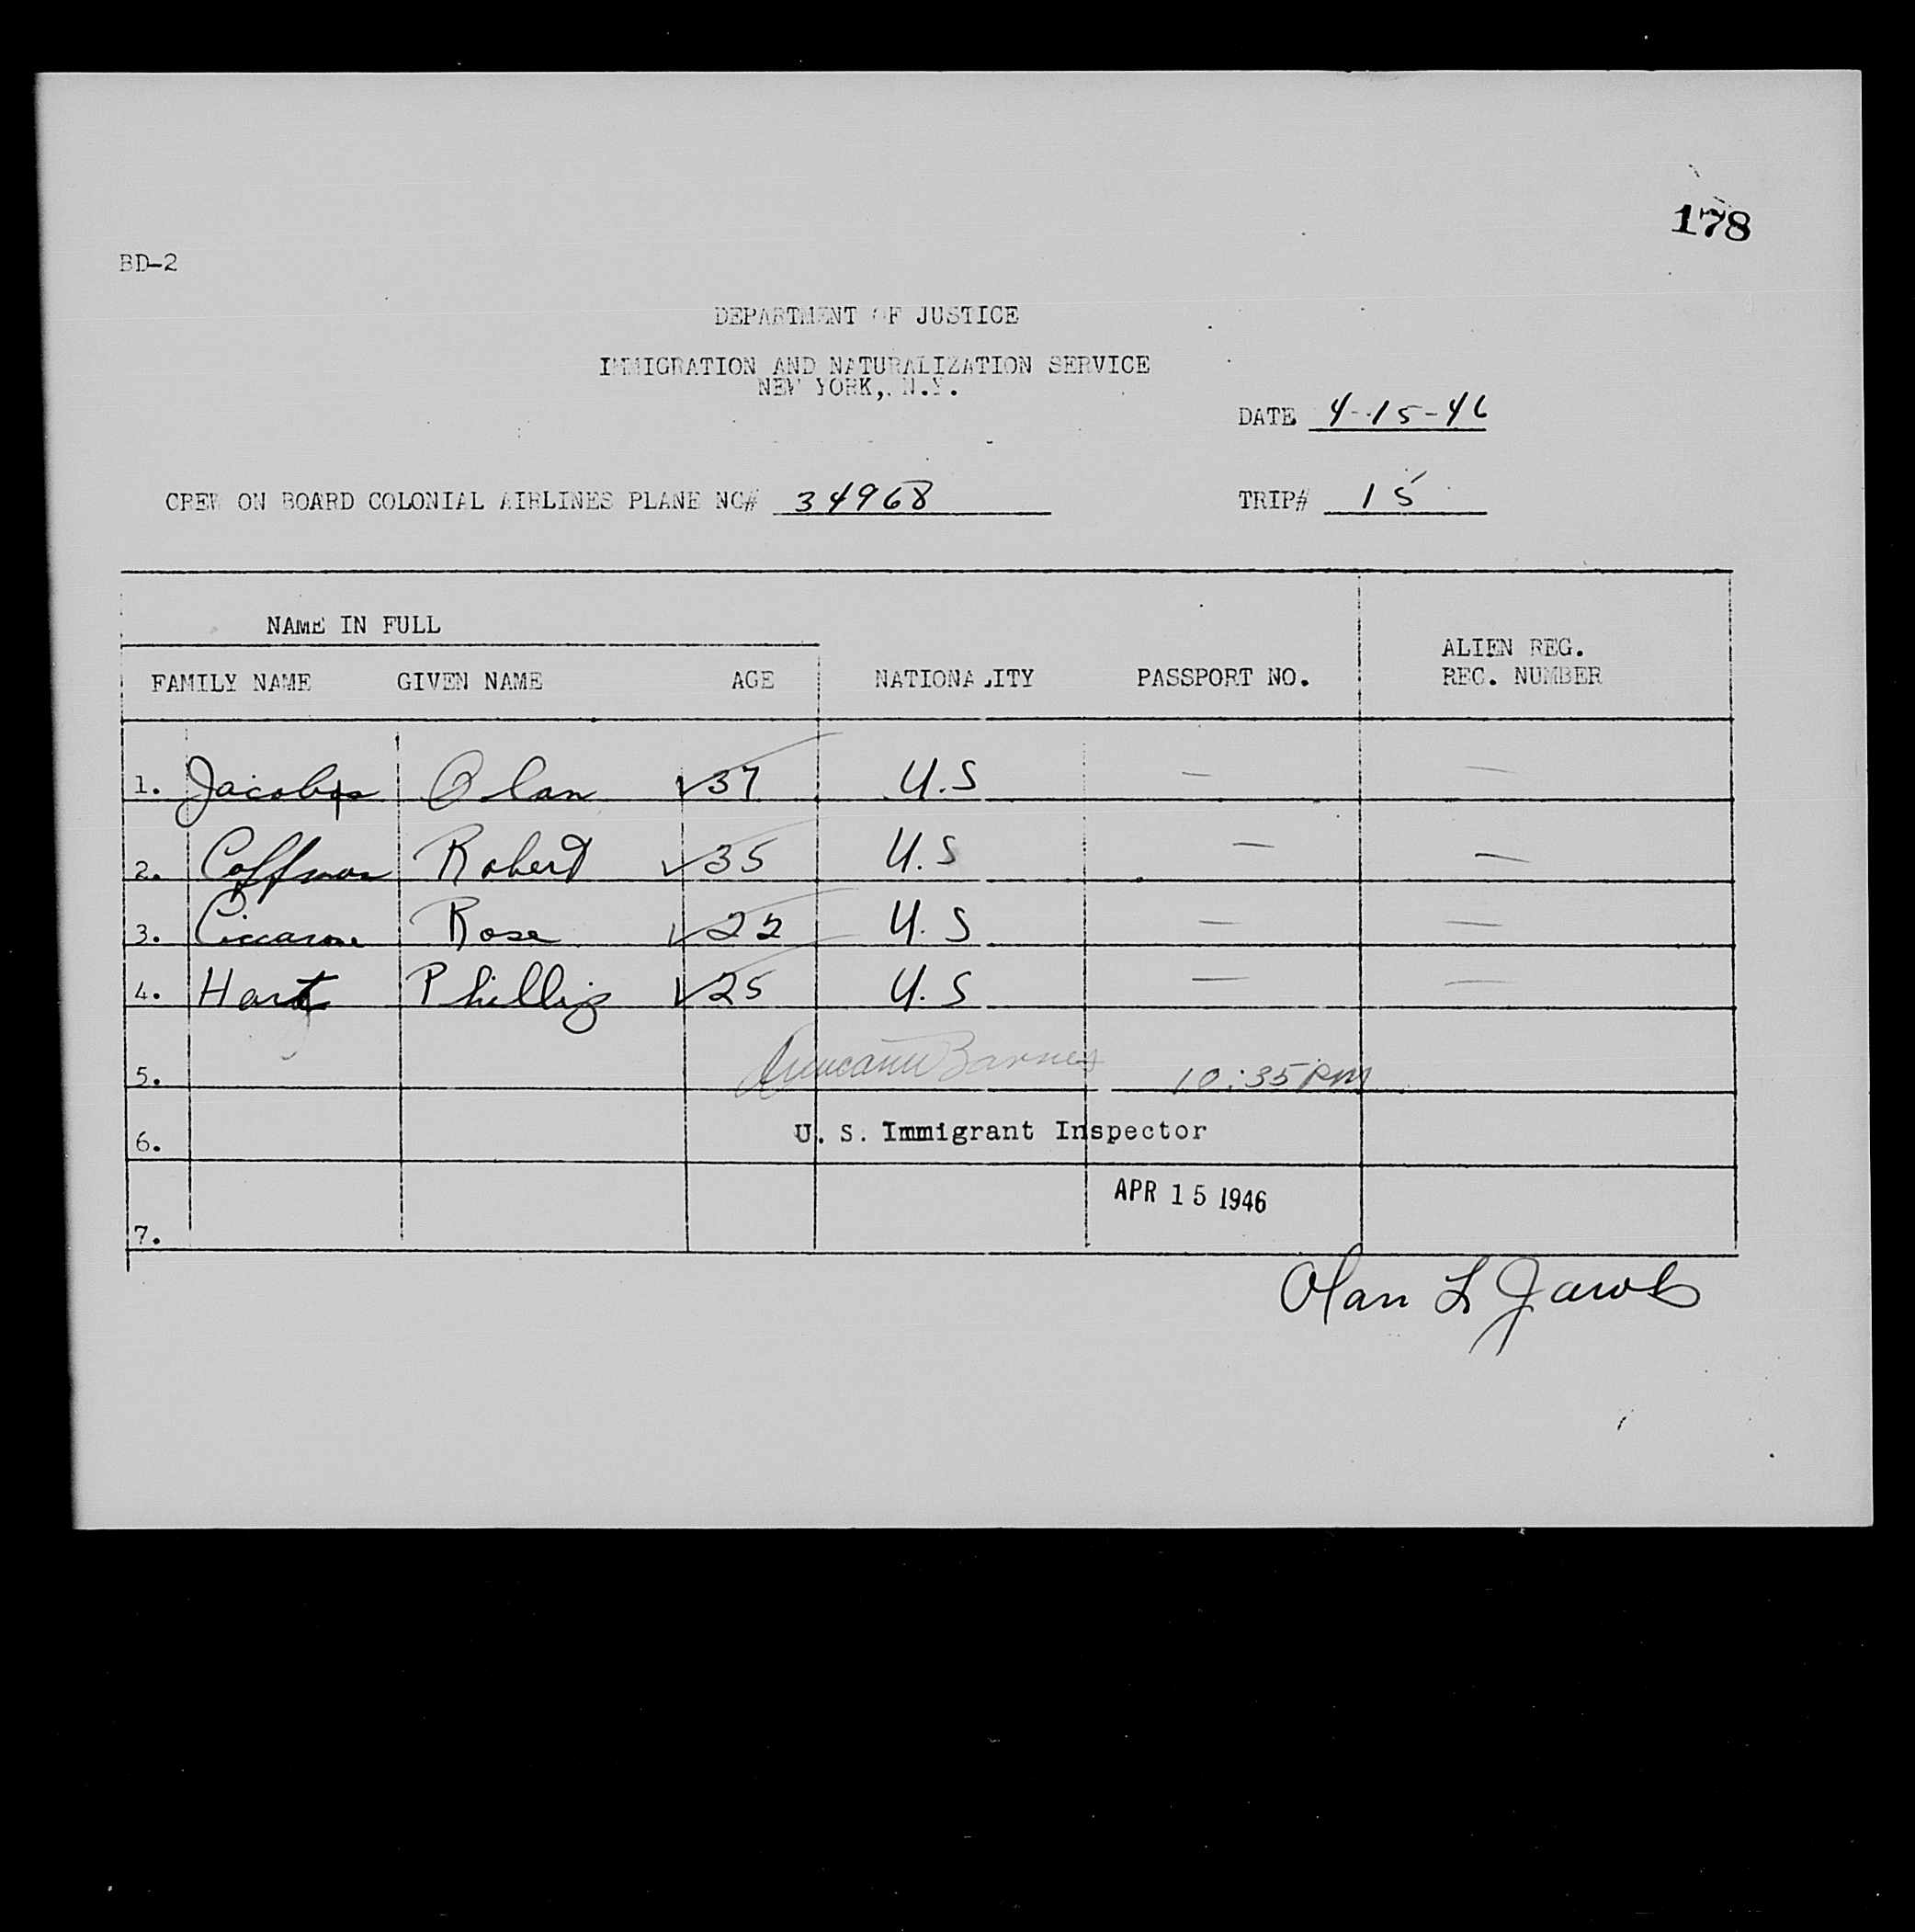 178
BD-2
DEPARTMENT OF JUSTICE
IMMIGRATION AND NATURALIZATION SERVICE
NEW YORK, N.Y.
DATE 4-15-46
CREW ON BOARD COLONIAL AIRLINES PLANE NC# 34968 TRIP# 15
NAME IN FULL
FAMILY NAME GIVEN NAME AGE NATIONALITY PASSPORT NO. ALIEN REG. REC. NUMBER
1. Jacobs Olan √37 U.S — —
2. Coffman Robert √35 U.S — —
3. Ciccarone Rose √22 U.S — —
4. Hart Phillip √25 U.S — —
5. Barnes 10:35 PM
6. U. S. Immigrant Inspector
APR 15 1946
7.
Olan L Jacobs